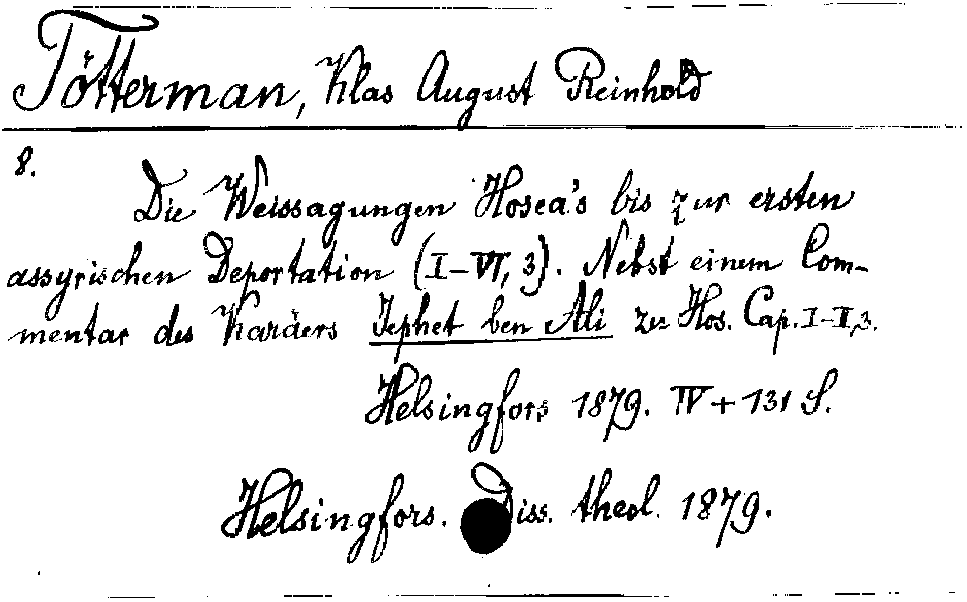 Tötterman, Klas August Reinhold
8.
Die Weissagungen Hosea's bis zur ersten
assyrischen Deportation (I-VI, 3). Nebst einem Com-
mentar des Karäers Jephet ben Ali zu Hos. Cap. I-II,3.
Helsingfors 1879. IV + 131 S.
Helsingfors. Diss. theol. 1879.